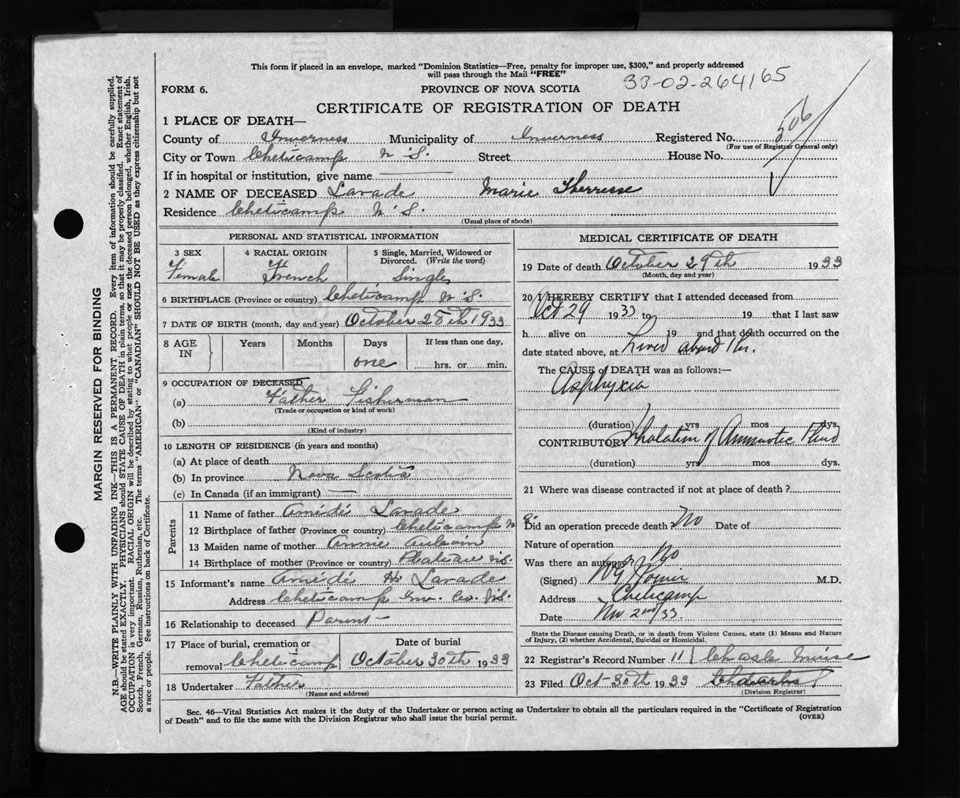 This form if placed in an envelope, marked "Dominion Statistics—Free, penalty for improper use, $300," and properly addressed
will pass through the Mail "FREE"
33-02-264165
FORM 6.
PROVINCE OF NOVA SCOTIA
CERTIFICATE OF REGISTRATION OF DEATH
506
1 PLACE OF DEATH—
County of Inverness Municipality of Inverness Registered No.
(For use of Registrar General only)
City or Town Cheticamp N.S. Street House No.
If in hospital or institution, give name
2 NAME OF DECEASED Larade Marie Therresse
Residence Cheticamp N.S.
(Usual place of abode)
PERSONAL AND STATISTICAL INFORMATION
3 SEX 4 RACIAL ORIGIN 5 Single, Married, Widowed or
Divorced. (Write the word)
Female French Single
6 BIRTHPLACE (Province or country) Cheticamp N.S.
7 DATE OF BIRTH (month, day and year) October 28th 1933
8 AGE IN Years Months Days If less than one day,
one hrs. or min.
9 OCCUPATION OF DECEASED
(a) Father Fisherman
(Trade or occupation or kind of work)
(b)
(Kind of industry)
10 LENGTH OF RESIDENCE (in years and months)
(a) At place of death
(b) In province Nova Scotia
(c) In Canada (if an immigrant)
Parents
11 Name of father Amédé Larade
12 Birthplace of father (Province or country) Cheticamp N S.
13 Maiden name of mother Annie Aucoin
14 Birthplace of mother (Province or country) Plateau N.S.
15 Informant's name Amédé H Larade
Address Cheticamp Inv. Co. N.S.
16 Relationship to deceased Parent
17 Place of burial, cremation or Date of burial
removal Cheticamp October 30th 1933
18 Undertaker Father
(Name and address)
MEDICAL CERTIFICATE OF DEATH
19 Date of death October 29th 1933
(Month, day and year)
20 I HEREBY CERTIFY that I attended deceased from
Oct 29 1933 to 19 that I last saw
h alive on 19 and that death occurred on
date stated above, at Lived about 1 hr.
The CAUSE OF DEATH was as follows:—
Asphyxia
(duration) yrs mos dys.
CONTRIBUTORY Inhalation of Amniotic Fluid
(duration) yrs mos dys.
21 Where was disease contracted if not at place of death?
Did an operation precede death? No Date of
Nature of operation
Was there an autopsy? No
(Signed) M.D.
Address Cheticamp
Date Nov 2nd/33.
State the Disease causing Death, or in death from Violent Causes, state (1) Means and Nature
of Injury, (2) whether Accidental, Suicidal or Homicidal.
22 Registrar's Record Number 11
23 Filed Oct 30th 1933
(Division Registrar)
Sec. 46—Vital Statistics Act makes it the duty of the Undertaker or person acting as Undertaker to obtain all the particulars required in the "Certificate of Registration
of Death" and to file the same with the Division Registrar who shall issue the burial permit.
(OVER)
MARGIN RESERVED FOR BINDING
N.B.—WRITE PLAINLY WITH UNFADING INK—THIS IS A PERMANENT RECORD. Every item of information should be carefully supplied.
AGE should be stated EXACTLY. PHYSICIANS should STATE CAUSE OF DEATH in plain terms, so that it may be properly classified. Exact statement of
OCCUPATION is very important. RACIAL ORIGIN will be described by stating to what people or race the deceased person belonged, whether English, Irish,
Scotch, French, German, Russian, Ruthenian, etc. The terms "AMERICAN" or "CANADIAN" SHOULD NOT BE USED as they express citizenship but not
a race or people. See instructions on back of Certificate.